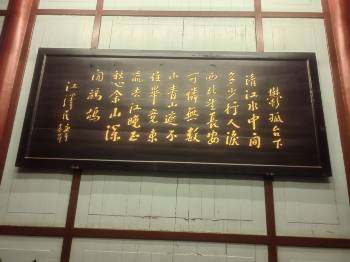 鬱孤台下
清江水中间
多少行人淚
西北望長安
可憐無數
山青山遮不
住畢竟東
流去江晚正
愁余山深
闻鹧鸪
江澤民